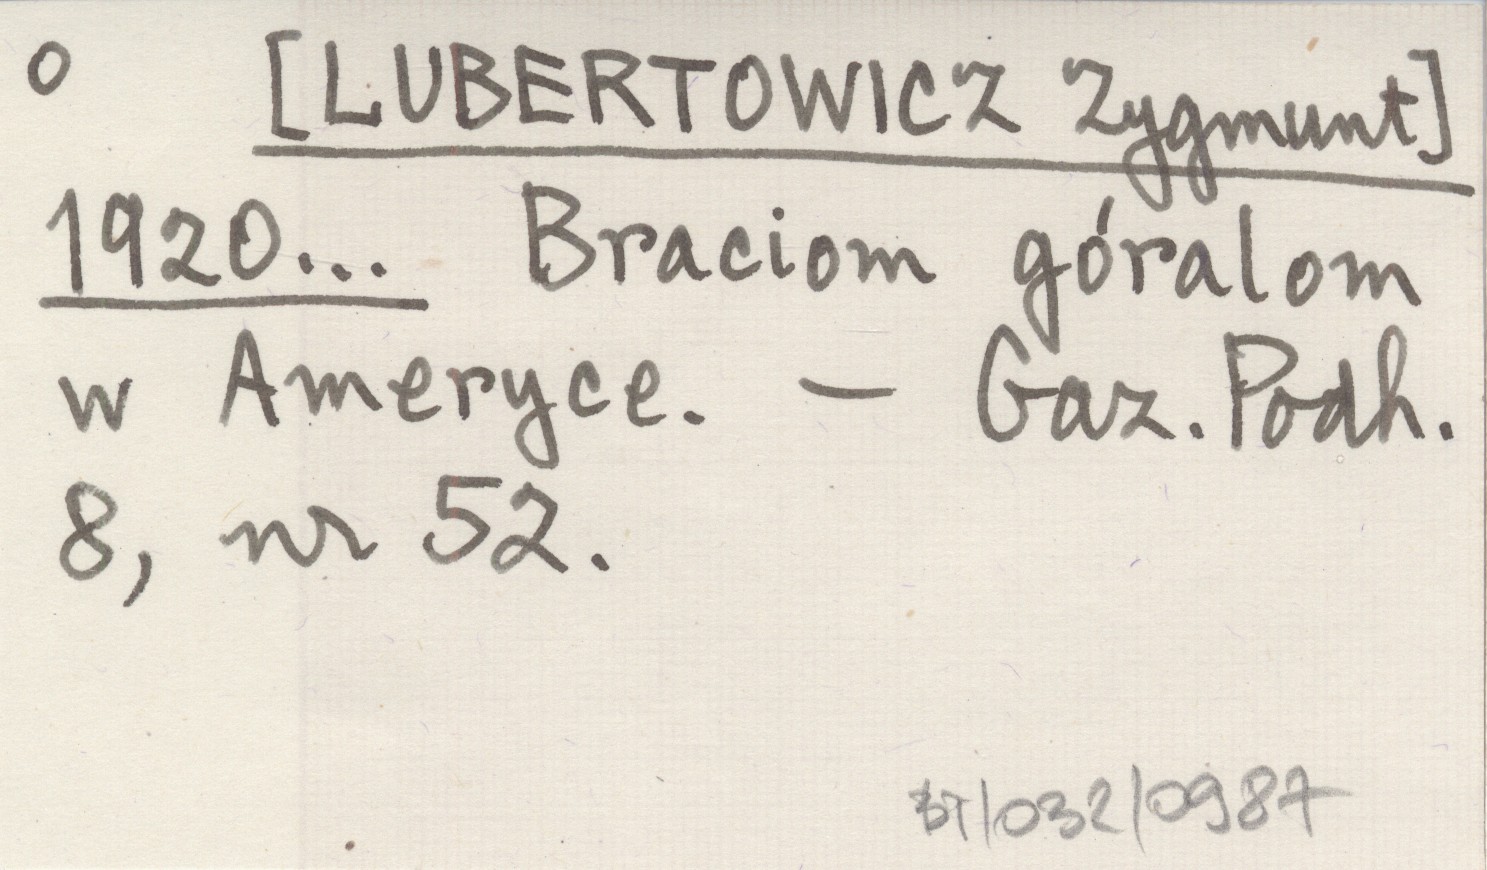 o [LUBERTOWICZ Zygmunt]
1920... Braciom góralom
w Ameryce. — Gaz. Podh.
8, nr 52.
BT/032/0987